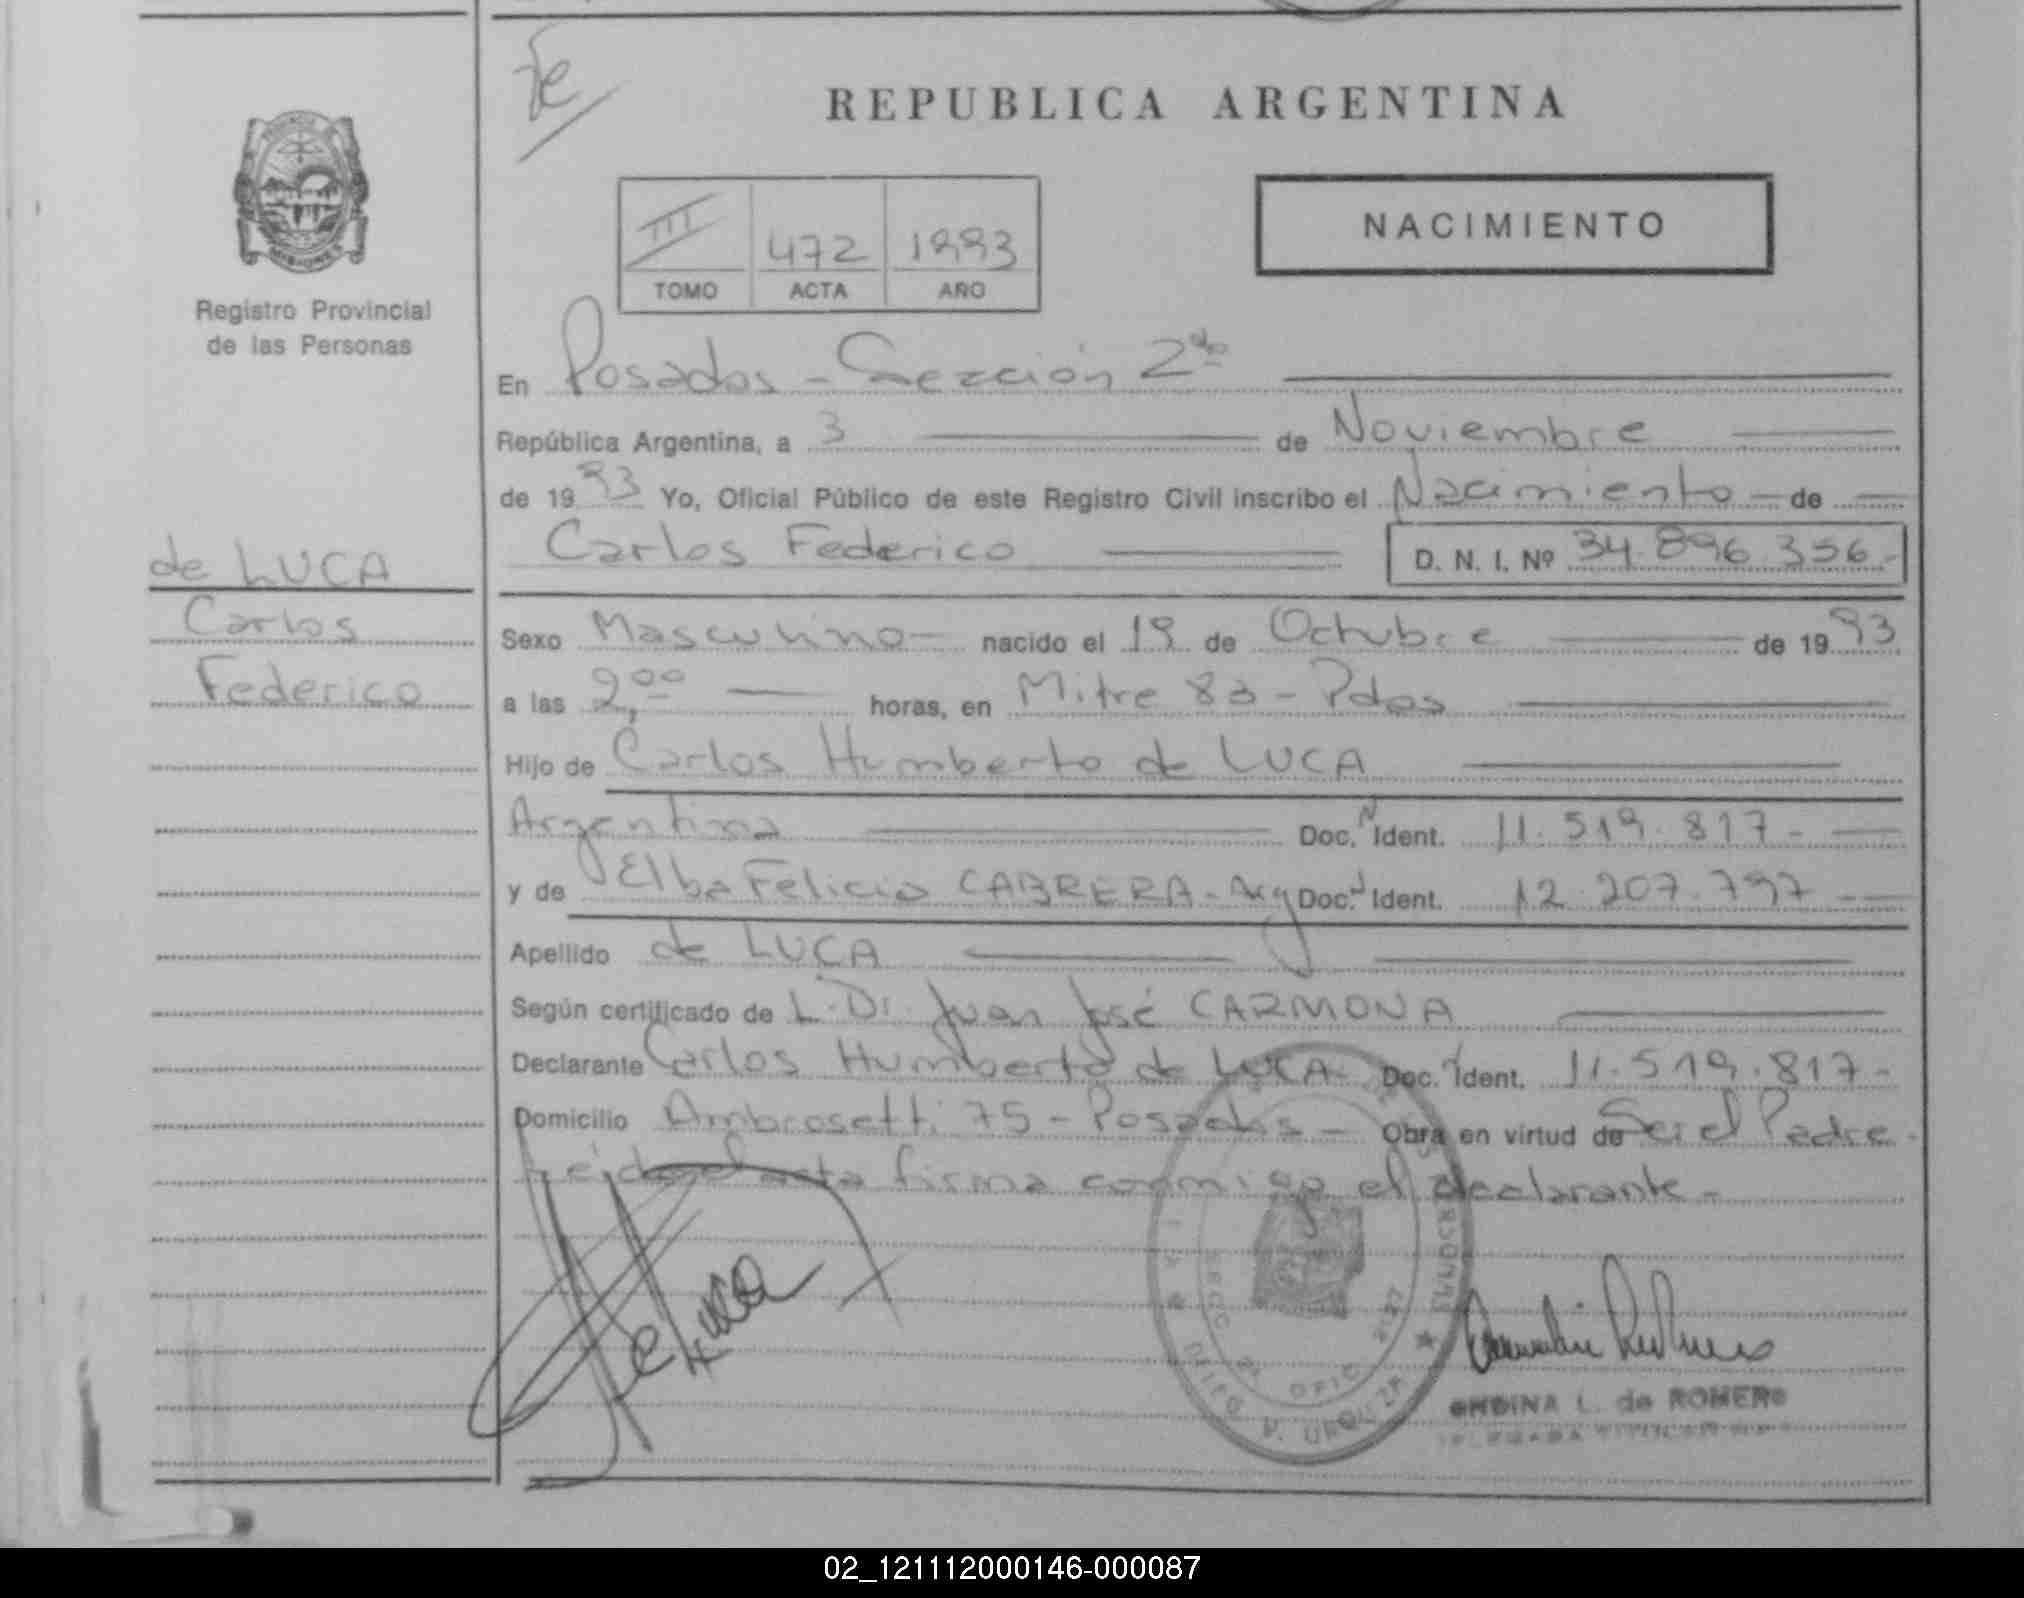 Fe
REPUBLICA ARGENTINA
MISIONES
Registro Provincial
de las Personas
III 472 1993
TOMO ACTA AÑO
NACIMIENTO
En Posadas - Sección 2da
República Argentina, a 3 de Noviembre
de 1993 Yo, Oficial Público de este Registro Civil inscribo el Nacimiento de
Carlos Federico D. N. I. Nº 34.896.356.-
de LUCA
Carlos
Federico
Sexo Masculino nacido el 19 de Octubre de 1993
a las 9,00 horas, en Mitre 83 - Pdas
Hijo de Carlos Humberto de LUCA
Argentina Doc. N Ident. 11.519.817.-
y de Elba Felicia CABRERA - Arg Doc. N Ident. 12.207.797
Apellido de LUCA
Según certificado de L. Dr. Juan José CARMONA
Declarante Carlos Humberto de LUCA - Doc. N Ident. 11.519.817.-
Domicilio Ambrosetti 75 - Posadas - Obra en virtud de Ser el Padre.
Leida el acta firma conmigo el declarante.-
de Luca
PERSONAS
SECC 2a OFIC 2127
DPTO V. URQUIZA
ONDINA L. de ROMERO
02_121112000146-000087